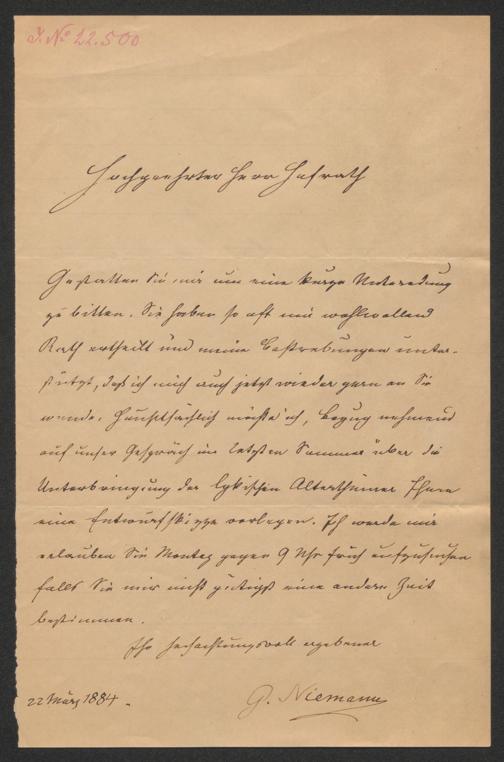 J. No 22.500
Hochgeehrter Herr Hofrath
Gestatten Sie mir um eine kurze Unterredung
zu bitten. Sie haben so oft mir wohlwollend
Rath ertheilt und meine Bestrebungen unter-
stützt, daß ich mich auch jetzt wieder gern an Sie
wende. Hauptsächlich möchte ich, bezug nehmend
auf unser Gespräch im letzten Sommer über die
Unterbringung der lykischen Alterthümer Ihnen
eine Entwurfskizze vorlegen. Ich werde mir
erlauben Sie Montag gegen 9 Uhr früh aufzusuchen
falls Sie mir nicht gütigst eine andere Zeit
bestimmen.
Ihr hochachtungsvoll ergebener
G. Niemann
22 März 1884.